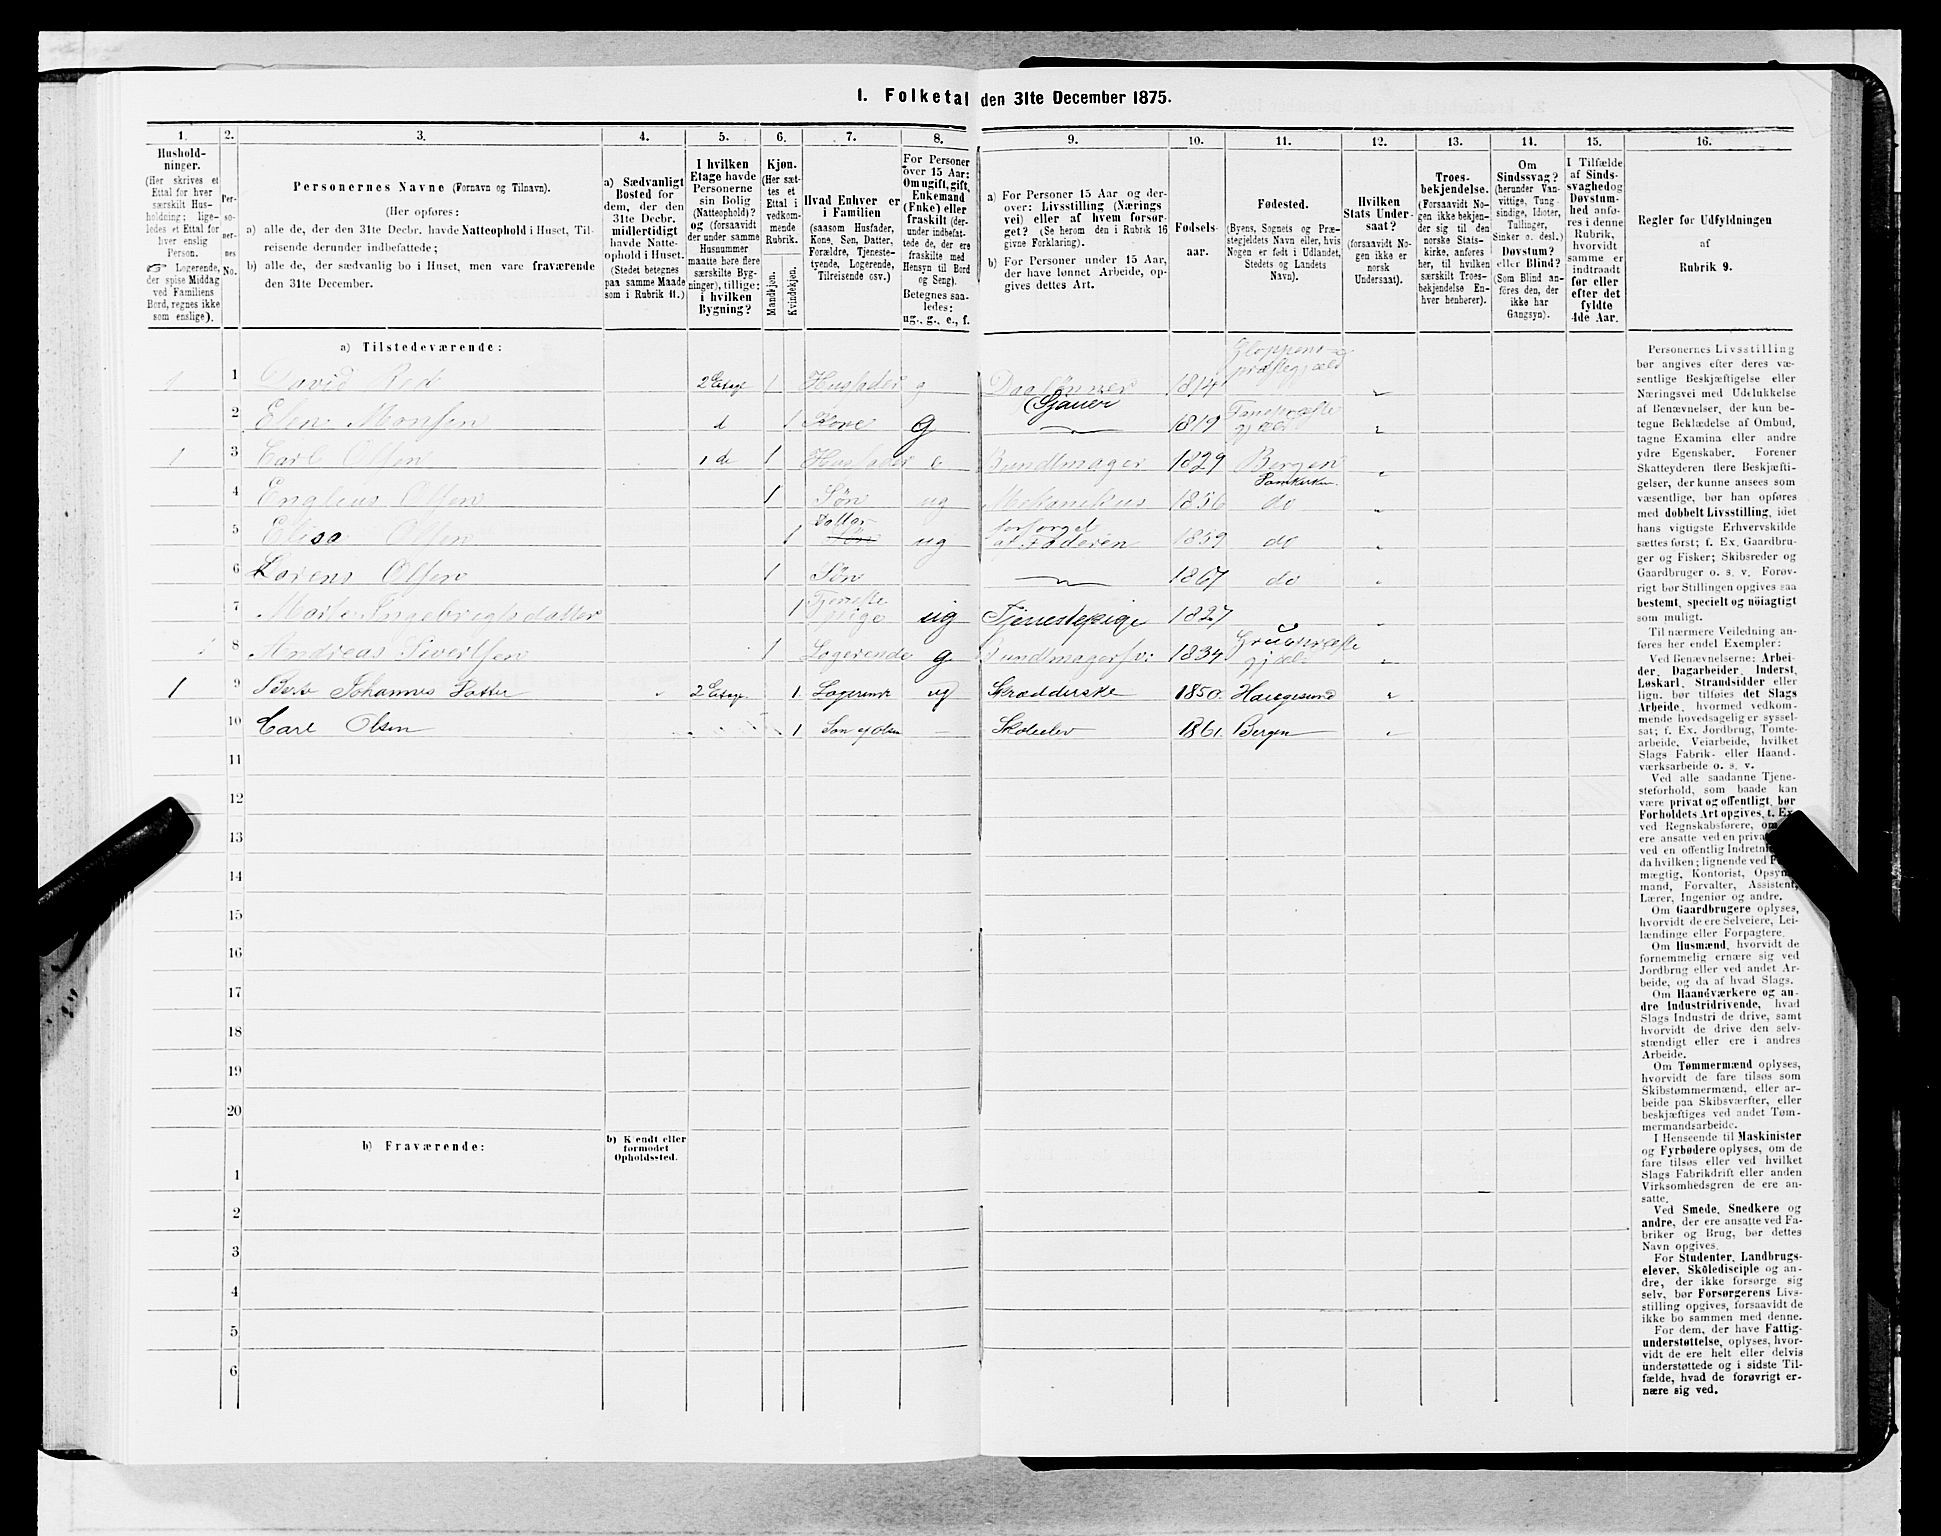 1. Folketal den 31te December 1875.
1. 2. 3. 4. 5. 6. 7. 8. 9. 10. 11. 12. 13. 14. 15. 16.
Hushold-
ninger.
(Her skrives et
Ettal for hver
særskilt Hus-
holdning; lige-
ledes et Ettal for
hver enslig
Person.
☞ Logerende,
der spise Middag
ved Familiens
Bord, regnes ikke
som enslige).
Per-
so-
ner-
nes
No.
Personernes Navne (Fornavn og Tilnavn).
(Her opføres:
a) alle de, der den 31te Decbr. havde Natteophold i Huset, Til-
reisende derunder indbefattede;
b) alle de, der sædvanlig bo i Huset, men vare fraværende
den 31te December.
a) Sædvanligt
Bosted for
dem, der den
31te Decbr.
midlertidigt
havde Natte-
ophold i Huset.
(Stedet betegnes
paa samme Maade
som i Rubrik 11.)
I hvilken
Etage havde
Personerne
sin Bolig
(Natteophold)?
og (forsaavidt
der under samme
Husnummer
maatte høre flere
særskilte Byg-
ninger), tillige:
i hvilken
Bygning?
Kjøn.
(Her sæt-
tes et
Ettal i
vedkom-
mende
Rubrik.
Mandkjøn.
Kvindekjøn.
Hvad Enhver er
i Familien
(saasom Husfader,
Kone, Søn, Datter,
Forældre, Tjeneste-
tyende, Logerende,
Tilreisende osv.)
For Personer
over 15 Aar:
Om ugift, gift,
Enkemand
(Enke) eller
fraskilt (der-
under indbefat-
tede de, der ere
fraskilte med
Hensyn til Bord
og Seng).
Betegnes saa-
ledes:
ug., g., e., f.
a) For Personer 15 Aar og der-
over: Livsstilling (Nærings
vei) eller af hvem forsør-
get? (Se herom den i Rubrik 16
givne Forklaring).
b) For Personer under 15 Aar,
der have lønnet Arbeide, op-
gives dettes Art.
Fødsels-
aar.
Fødested.
(Byens, Sognets og Præ-
stegjeldets Navn eller, hvis
Nogen er født i Udlandet,
Stedets og Landets
Navn).
Hvilken
Stats Under-
saat?
(forsaavidt No-
gen ikke er
norsk
Undersaat).
Troes-
bekjendelse.
(Forsaavidt No-
gen ikke bekjen-
der sig til den
norske Stats-
kirke, anføres
her, til hvilken
særskilt Troes-
bekjendelse En-
hver henhører).
Om
Sindssvag?
(herunder Van-
vittige, Tung-
sindige, Idioter,
Tullinger,
Sinker o. desl.)
Døvstum?
eller Blind?
(Som Blind an-
føres den, der
ikke har
Gangsyn).
I Tilfælde
af Sinds-
svaghed og
Døvstum-
hed anfø-
res i denne
Rubrik,
hvorvidt
samme er
indtraadt
før eller
efter det
fyldte
4de Aar.
Regler for Udfyldningen
af
Rubrik 9.
a) Tilstedeværende:
1 1 David 2 Etage 1 Husfader g Daglønner 1814 Gloppens præstegjæld "
2 Elen Monsen d 1 Kone g Sjauer 1819 Fanepræstegjæld "
1 3 Carl Olsen 1 de 1 Husfader e Bundtmager 1829 Bergen Domkirken "
4 Englius Olsen 1 Søn ug Mekanikus 1856 do "
5 Elisa Olsen 1 Datter Søn ug forsørget af Faderen 1859 do "
6 Lorens Olsen 1 Søn 1867 do "
7 Marte Ingebrigtsdatter 1 Tjenestepige ug Tjenestepige 1827 "
1 8 Andreas Sivertsen 1 Logerende g Bundtmagersv: 1834 "
1 9 Johannes Datter " 2 Etage 1. Logerende ug Skrædderske 1850. Haugesund "
10 Carl Olsen 1 Søn af Olsen – Skoleelev 1861. Bergen "
11
12
13
14
15
16
17
18
19
20
b) Fraværende:
b) Kjendt eller
formodet
Opholdssted.
1
2
3
4
5
6
Personernes Livsstilling
bør angives efter deres væ-
sentlige Beskjæftigelse eller
Næringsvei med Udelukkelse
af Benævnelser, der kun be-
tegne Beklædelse af Ombud,
tagne Examina eller andre
ydre Egenskaber. Forener
Skatteyderen flere Beskjæfti-
gelser, der kunne ansees som
væsentlige, bør han opføres
med dobbelt Livsstilling, idet
hans vigtigste Erhvervskilde
sættes først; f. Ex. Gaardbru-
ger og Fisker; Skibsreder og
Gaardbruger o. s. v. Forøv-
rigt bør Stillingen opgives saa
bestemt, specielt og nöiagtigt
som muligt.
Til nærmere Veiledning an-
føres her endel Exempler:
Ved Benævnelserne: Arbei-
der, Dagarbeider, Inderst,
Løskarl, Strandsidder eller
lign. bør tilføies det Slags
Arbeide, hvormed vedkom-
mende hovedsagelig er syssel-
sat; f. Ex. Jordbrug, Tomte-
arbeide, Veiarbeide, hvilket
Slags Fabrik- eller Haand-
værksarbeide o. s. v.
Ved alle saadanne Tjene-
steforhold, som baade kan
være privat og offentligt, bør
Forholdets Art opgives, t. Ex.
ved Regnskabsførere, om
ere ansatte ved en priva
ved en offentlig Indretn
da hvilken; lignende ved
mægtig, Kontorist, Opsyns
mand, Forvalter, Assistent,
Lærer, Ingeniør og andre.
Om Gaardbrugere oplyses,
hvorvidt de ere Selveiere, Lei-
lændinge eller Forpagtere.
Om Husmænd, hvorvidt de
fornemmelig ernære sig ved
Jordbrug eller ved andet Ar-
beide, og da af hvad Slags.
Om Haandværkere og an-
dre Industridrivende, hvad
Slags Industri de drive, samt
hvorvidt de drive den selv-
stændigt eller ere i andres
Arbeide.
Om Tømmermænd oplyses,
hvorvidt de fare tilsøs som
Skibstømmermænd, eller ar-
beide paa Skibsværfter, eller
beskjæftiges ved andet Tøm-
mermandsarbeide.
I Henseende til Maskinister
og Fyrbødere oplyses, om de
fare tilsøs eller ved hvilket
Slags Fabrikdrift eller anden
Virksomhedsgren de ere an-
satte.
Ved Smede, Snedkere og
andre, der ere ansatte ved Fa-
briker og Brug, bør dettes
Navn opgives.
For Studenter, Landbrugs-
elever, Skoledisciple og an-
dre, der ikke forsørge sig
selv, bør Forsørgerens Livs-
stilling opgives, forsaavidt de
ikke bo sammen med denne.
For dem, der have Fattig-
understøttelse, oplyses, hvor-
vidt de ere helt eller delvis
understøttede og i sidste Til-
fælde, hvad de forøvrigt er-
nære sig ved.